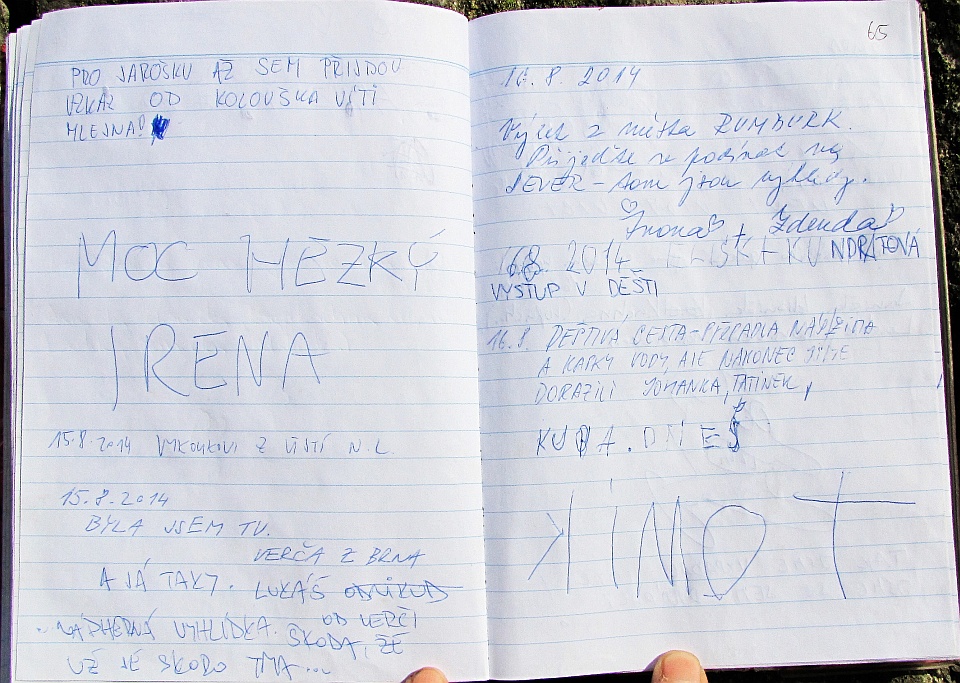 PRO JAROŠKU AŽ SEM PŘIJDOU
VZKAZ OD KOLOUŠKA
MLEJNA!
MOC HEZKÝ
IRENA
15.8.2014 VYKOUKOVI Z ÚSTÍ N. L.
15.8.2014
BYLA JSEM TU.
VERČA Z BRNA
A JÁ TAKY. LUKÁŠ ODNIKUD
OD VERČI
NÁDHERNÁ VYHLÍDKA. ŠKODA, ŽE
UŽ JE SKORO TMA...
65
16. 8. 2014
Výlet z města RUMBURK.
Přijeďte se podívat na
SEVER - tam jsou výhledy.
Ivona + Zdenda
16.8. 2014 ELIŠKA KUNDRÁTOVÁ
VÝSTUP V DEŠTI
16.8. DEŠTIVÁ CESTA-
A KAPKY VODY, ALE NAKONEC JSME
DORAZILI JOHANKA, TATÍNEK,
KUBA.
TIMO